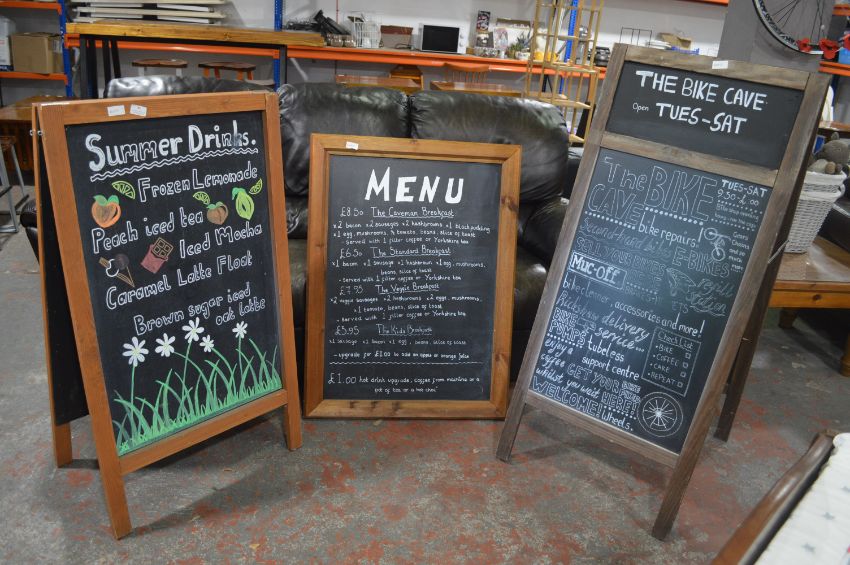 Summer Drinks.
Frozen Lemonade
Peach iced tea
Iced Mocha
Caramel Latte Float
Brown sugar iced
oat latte
MENU
£8.50 The Caveman Breakfast
×2 bacon ×2 sausages ×2 hashbrowns ×1 black pudding
×1 egg, mushrooms, ½ tomato, beans, slice of toast
- Served with 1 filter coffee or Yorkshire tea
£6.50 The Standard Breakfast
×1 bacon ×1 sausage ×1 hashbrown ×1 egg, mushrooms,
beans, slice of toast
- Served with 1 filter coffee or Yorkshire tea
£7.95 The Veggie Breakfast
×2 veggie sausages ×2 hashbrowns ×2 eggs, mushrooms,
×1 tomato, beans, slice of toast
- Served with 1 filter coffee or Yorkshire tea
£5.95 The Kids Breakfast
×1 sausage ×1 bacon ×1 egg, beans, slice of toast
- upgrade for £1.00 to add an apple or orange juice
£1.00 hot drink upgrade, coffee from machine or a
pot of tea or a hot choc
THE BIKE CAVE
Open TUES-SAT
The BIKE
CAVE
TUES-SAT
9:30-2:00
bike repairs!
Second-hand bikes
E-BIKES
Muc-Off
bike cleaner - accessories and more!
delivery
service...
tubeless
support centre
Check List
- BIKE
- COFFEE
- CAKE
- REPEAT
enjoy a
coffee
GET YOUR BIKE
whilst you wait
HERE!
WELCOME!
Wheels.